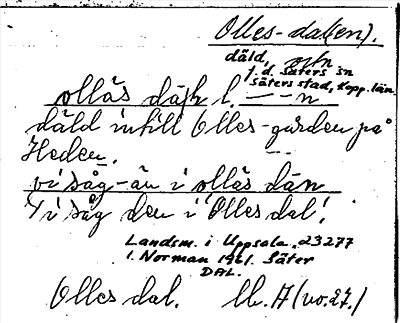 Olles-dal(en).
däld, ortn
f.d. Säters sn
Säters stad, Kopp. län.
ollås dɑ̄ḷ l. — — n
däld intill Olles-gården på
Heden.
vi såg-än i ollås dān
"Vi såg den i Olles dal".
Landsm. i Uppsala. 23277
I. Norman 1961. Säter
DAL.
Olles dal. ll. A (no.27.)